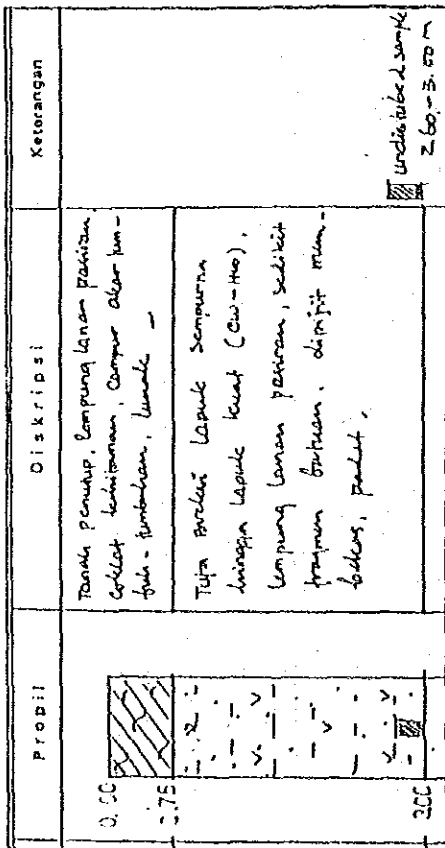 Propil
Diskripsi
Keterangan
0.00
0.75
3.00
Tanah penutup, lempung lanau pasiran,
coklat kehitaman, campur akar tum-
buh-tumbuhan, lunak
Tufa Breksi lapuk sempurna
hingga lapuk kuat (CW-HW),
lempung lanau pasiran, sedikit
fragmen batuan, dipijit mem-
bekas, padat.
undisturbed sample
2.60-3.00 m